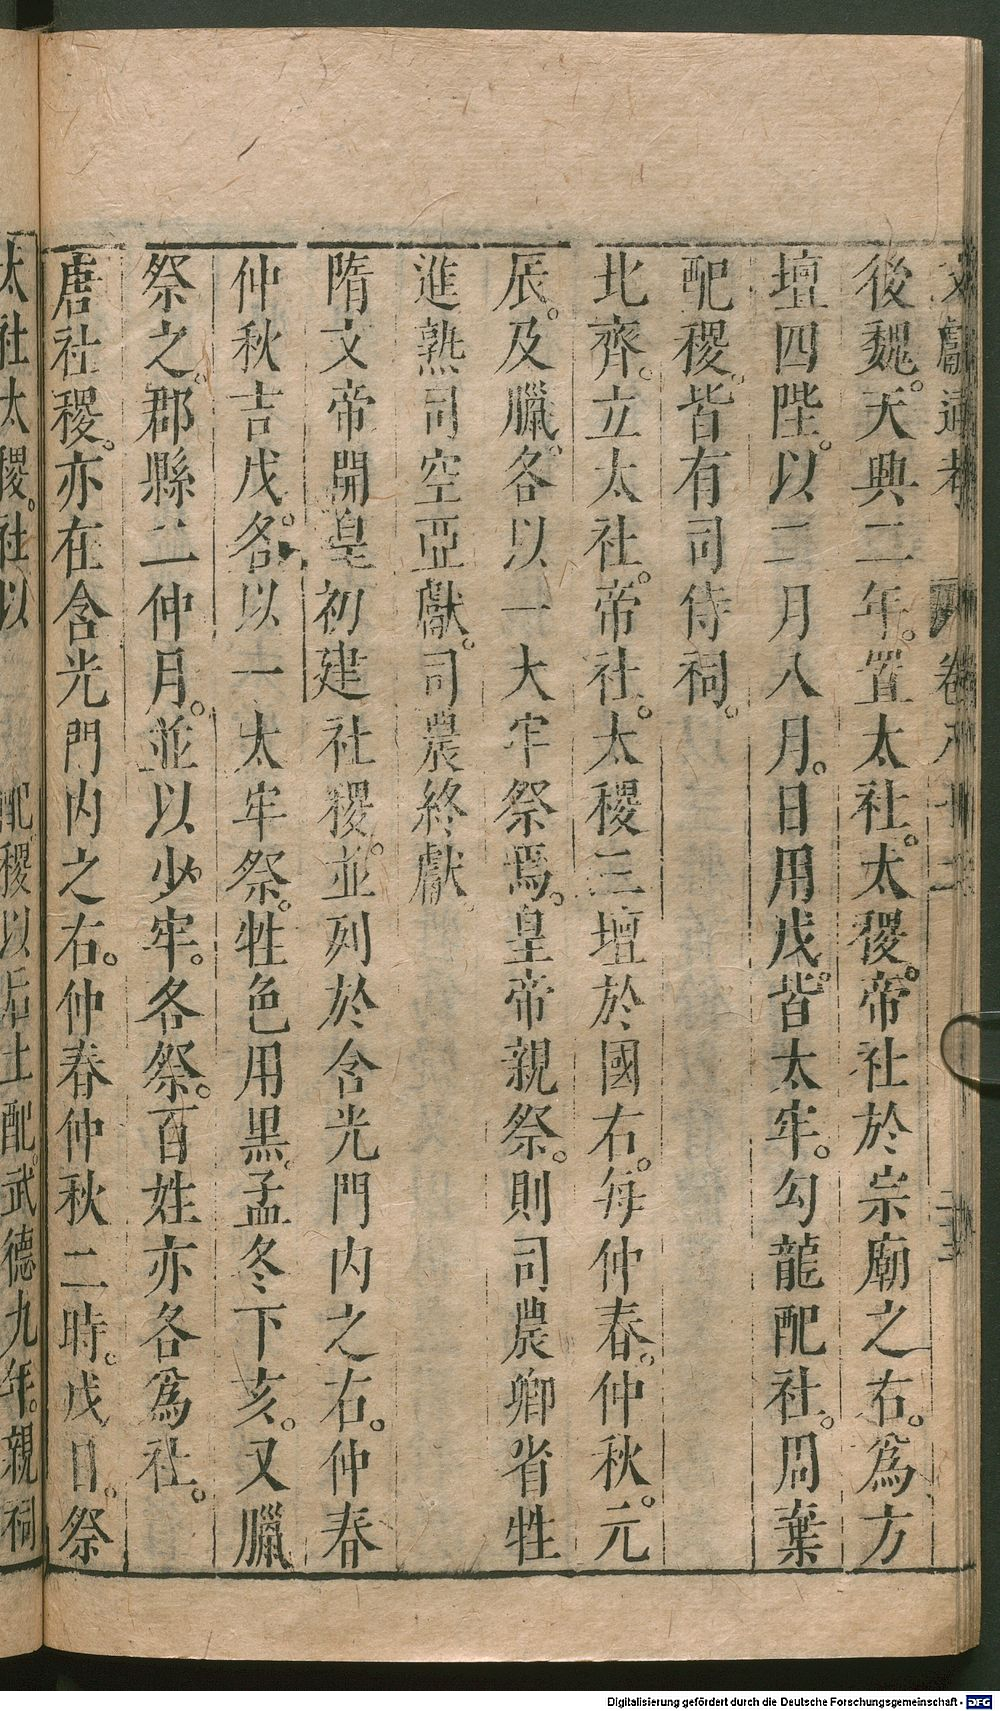 文獻通考 卷八十二
後魏。天興二年。置太社。太稷。帝社於宗廟之右。爲方
壇四陛。以二月八月。日用戊。皆太牢。勾龍配社。周棄
配稷。皆有司侍祠。
北齊。立太社。帝社。太稷三壇於國右。每仲春。仲秋。元
辰。及臘。各以一大牢祭焉。皇帝親祭。則司農卿省牲
進熟司空亞獻。司農終獻。
隋文帝開皇初建社稷。並列於含光門內之右。仲春
仲秋吉戊。各以一太牢祭。牲色用黑。孟冬下亥。又臘
祭之。郡縣二仲月。並以少牢。各祭。百姓亦各爲社。
唐社稷。亦在含光門內之右。仲春仲秋二時。戊日。祭
太社太稷。社以 配稷以后土配。武德九年。親祠
Digitalisierung gefördert durch die Deutsche Forschungsgemeinschaft - DFG